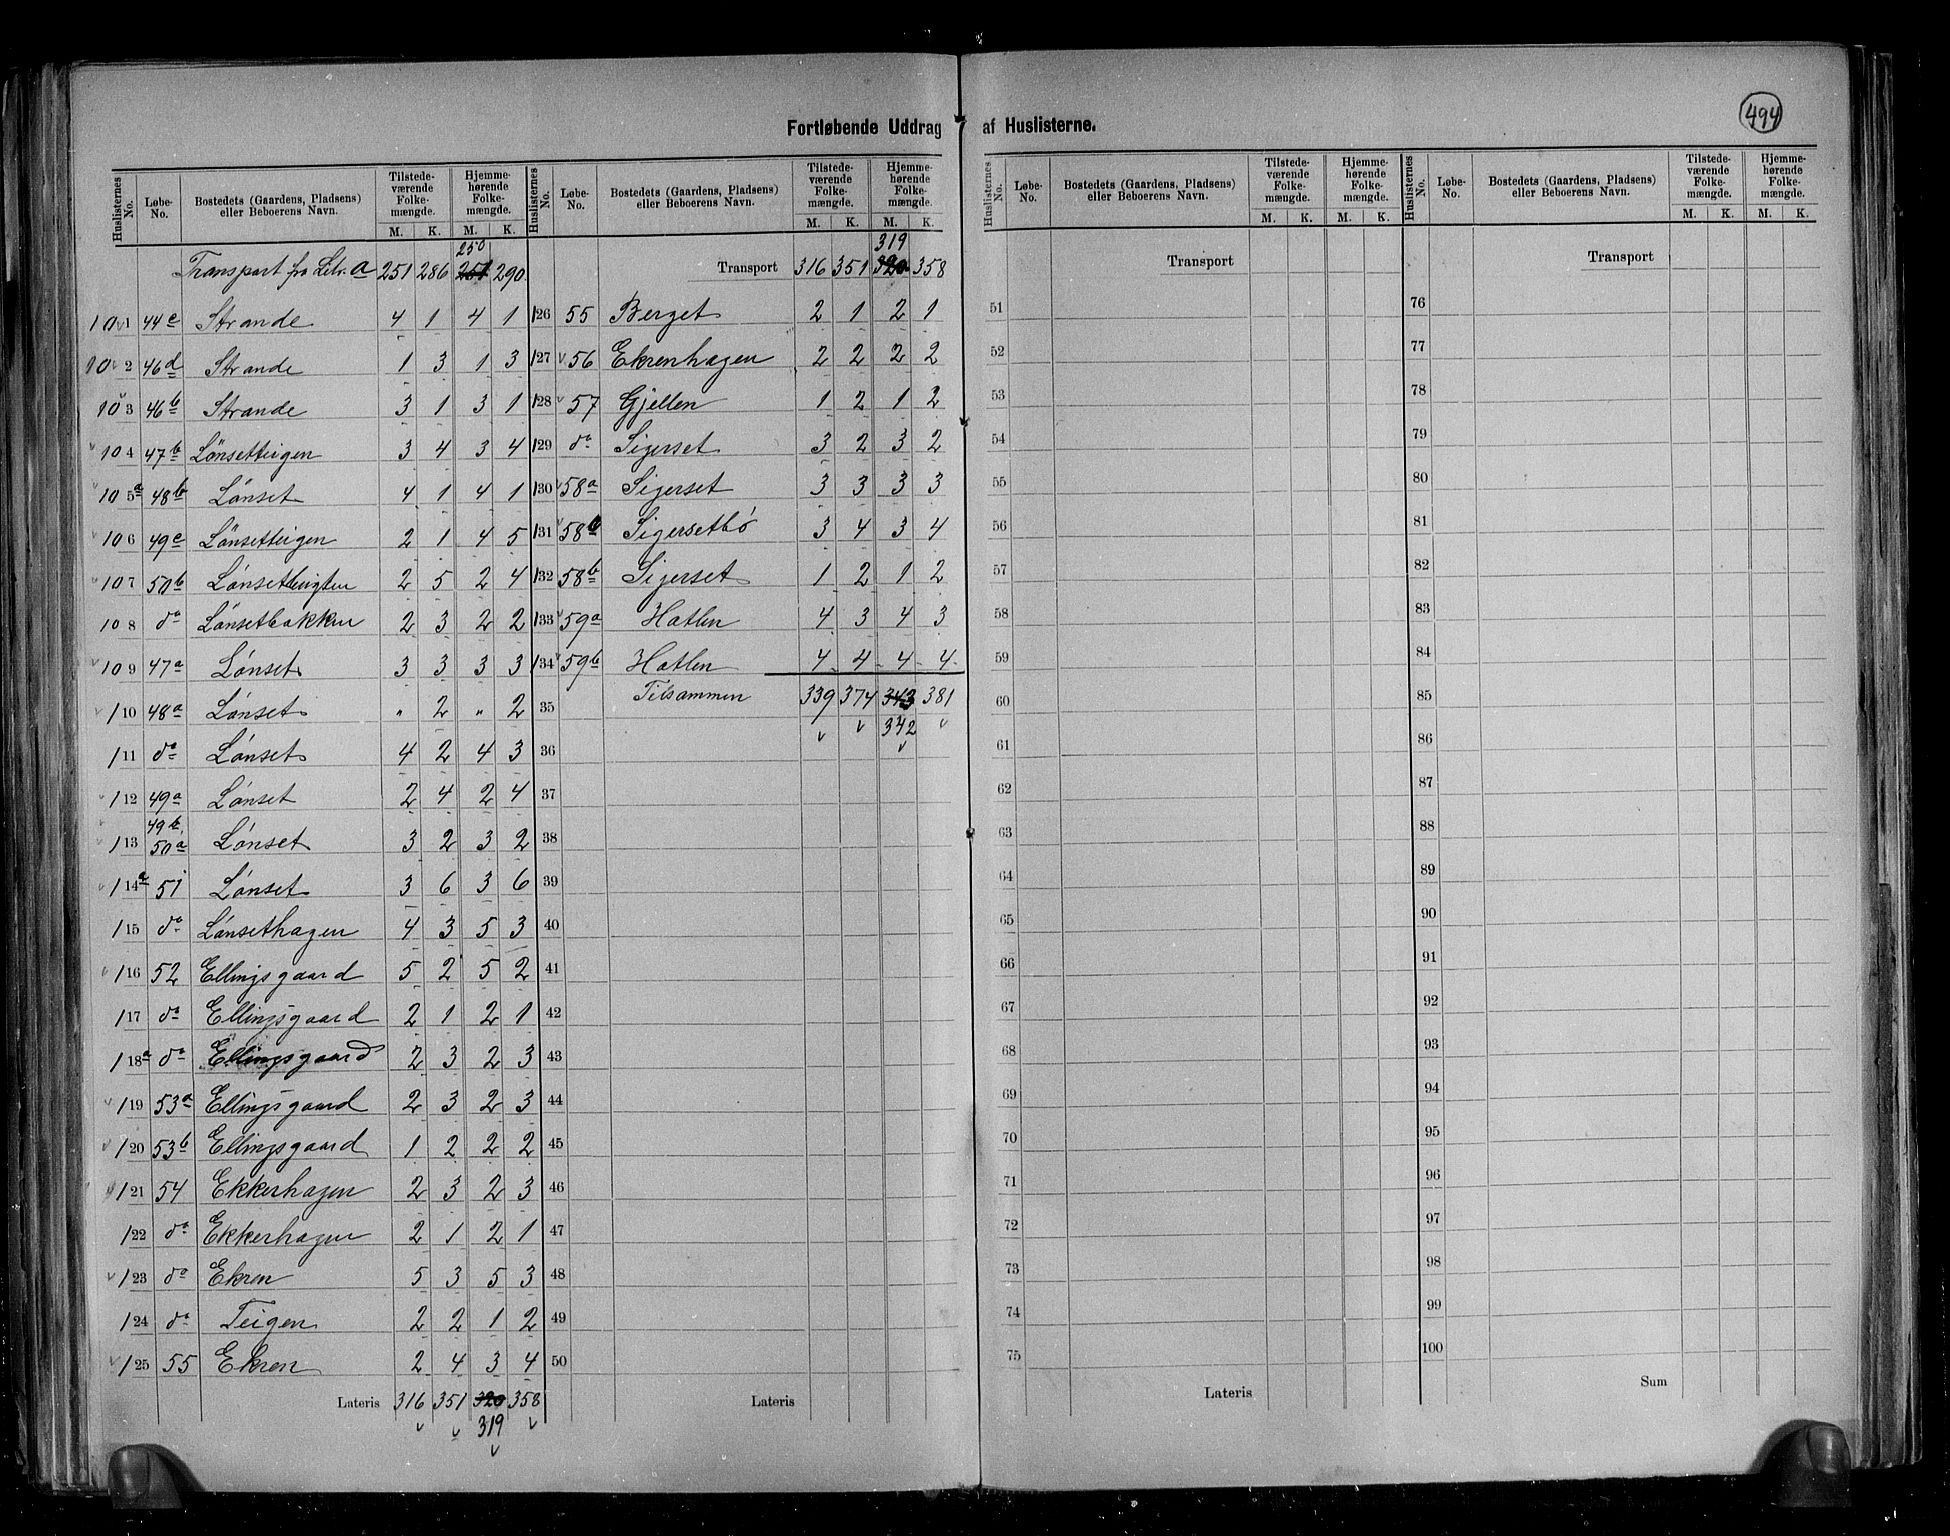 494
Fortløbende Uddrag af Huslisterne.
Huslisternes No. Løbe-No. Bostedets (Gaardens, Pladsens) eller Beboerens Navn. Tilstede-værende Folke-mængde. M. K. Hjemme-hørende Folke-mængde. M. K.
250
Transport fra Litr. a 251 286 251 290
101 44c Strande 4 1 4 1
102 46d Strande 1 3 1 3
103 46b Strande 3 1 3 1
104 47b Lönsetteigen 3 4 3 4
105a 48b Lönset 4 1 4 1
106 49c Lönsetteigen 2 1 4 5
107 50b 2 5 2 4
108 do Lönsetbakken 2 3 2 2
109 47a Lönset 3 3 3 3
110 48a Lönset " 2 " 2
111 do Lönset 4 2 4 3
112 49a Lönset 2 4 2 4
113 49b 50a Lönset 3 2 3 2
114a 51 Lönset 3 6 3 6
115 do Lönsethagen 4 3 5 3
116 52 Ellingsgaard 5 2 5 2
117 do Ellingsgaard 2 1 2 1
118a do Ellingsgaard 2 3 2 3
119 53a Ellingsgaard 2 3 2 3
120 53b Ellingsgaard 1 2 2 2
121 54 Ekkerhagen 2 3 2 3
122 do Ekkerhagen 2 1 2 1
123 do Ekren 5 3 5 3
124 do Teigen 2 2 1 2
125 55 Ekren 2 4 3 4
Lateris 316 351 320 358
319
Huslisternes No. Løbe-No. Bostedets (Gaardens, Pladsens) eller Beboerens Navn. Tilstede-værende Folke-mængde. M. K. Hjemme-hørende Folke-mængde. M. K.
319
Transport 316 351 320 358
126 55 Berget 2 1 2 1
127 56 Ekrenhagen 2 2 2 2
128 57 Gjellen 1 2 1 2
129 do Sigerset 3 2 3 2
130 58a Sigerset 3 3 3 3
131 58b Sigersetbö 3 4 3 4
132 58b Sigerset 1 2 1 2
133 59a Hatlen 4 3 4 3
134 59b Hatlen 4 4 4 4
35 Tilsammen 339 374 343 381
342
36
37
38
39
40
41
42
43
44
45
46
47
48
49
50
Lateris
Huslisternes No. Løbe-No. Bostedets (Gaardens, Pladsens) eller Beboerens Navn. Tilstede-værende Folke-mængde. M. K. Hjemme-hørende Folke-mængde. M. K.
Transport
51
52
53
54
55
56
57
58
59
60
61
62
63
64
65
66
67
68
69
70
71
72
73
74
75
Lateris
Huslisternes No. Løbe-No. Bostedets (Gaardens, Pladsens) eller Beboerens Navn. Tilstede-værende Folke-mængde. M. K. Hjemme-hørende Folke-mængde. M. K.
Transport
76
77
78
79
80
81
82
83
84
85
86
87
88
89
90
91
92
93
94
95
96
97
98
99
100
Sum